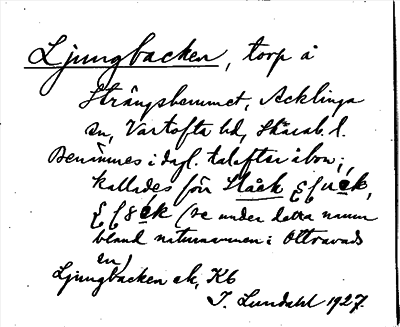 Ljungbacken, torp å
Strängsbemmet, Acklinga
sn, Vartofta hd, Skarab. l.
Benämnes i dagl. tal efter åbon;
kallades förr Slåck
(se under detta namn
bland naturnamnen i Ottravads
sn)
Ljungbacken ek, Kb
T. Lundahl 1927.